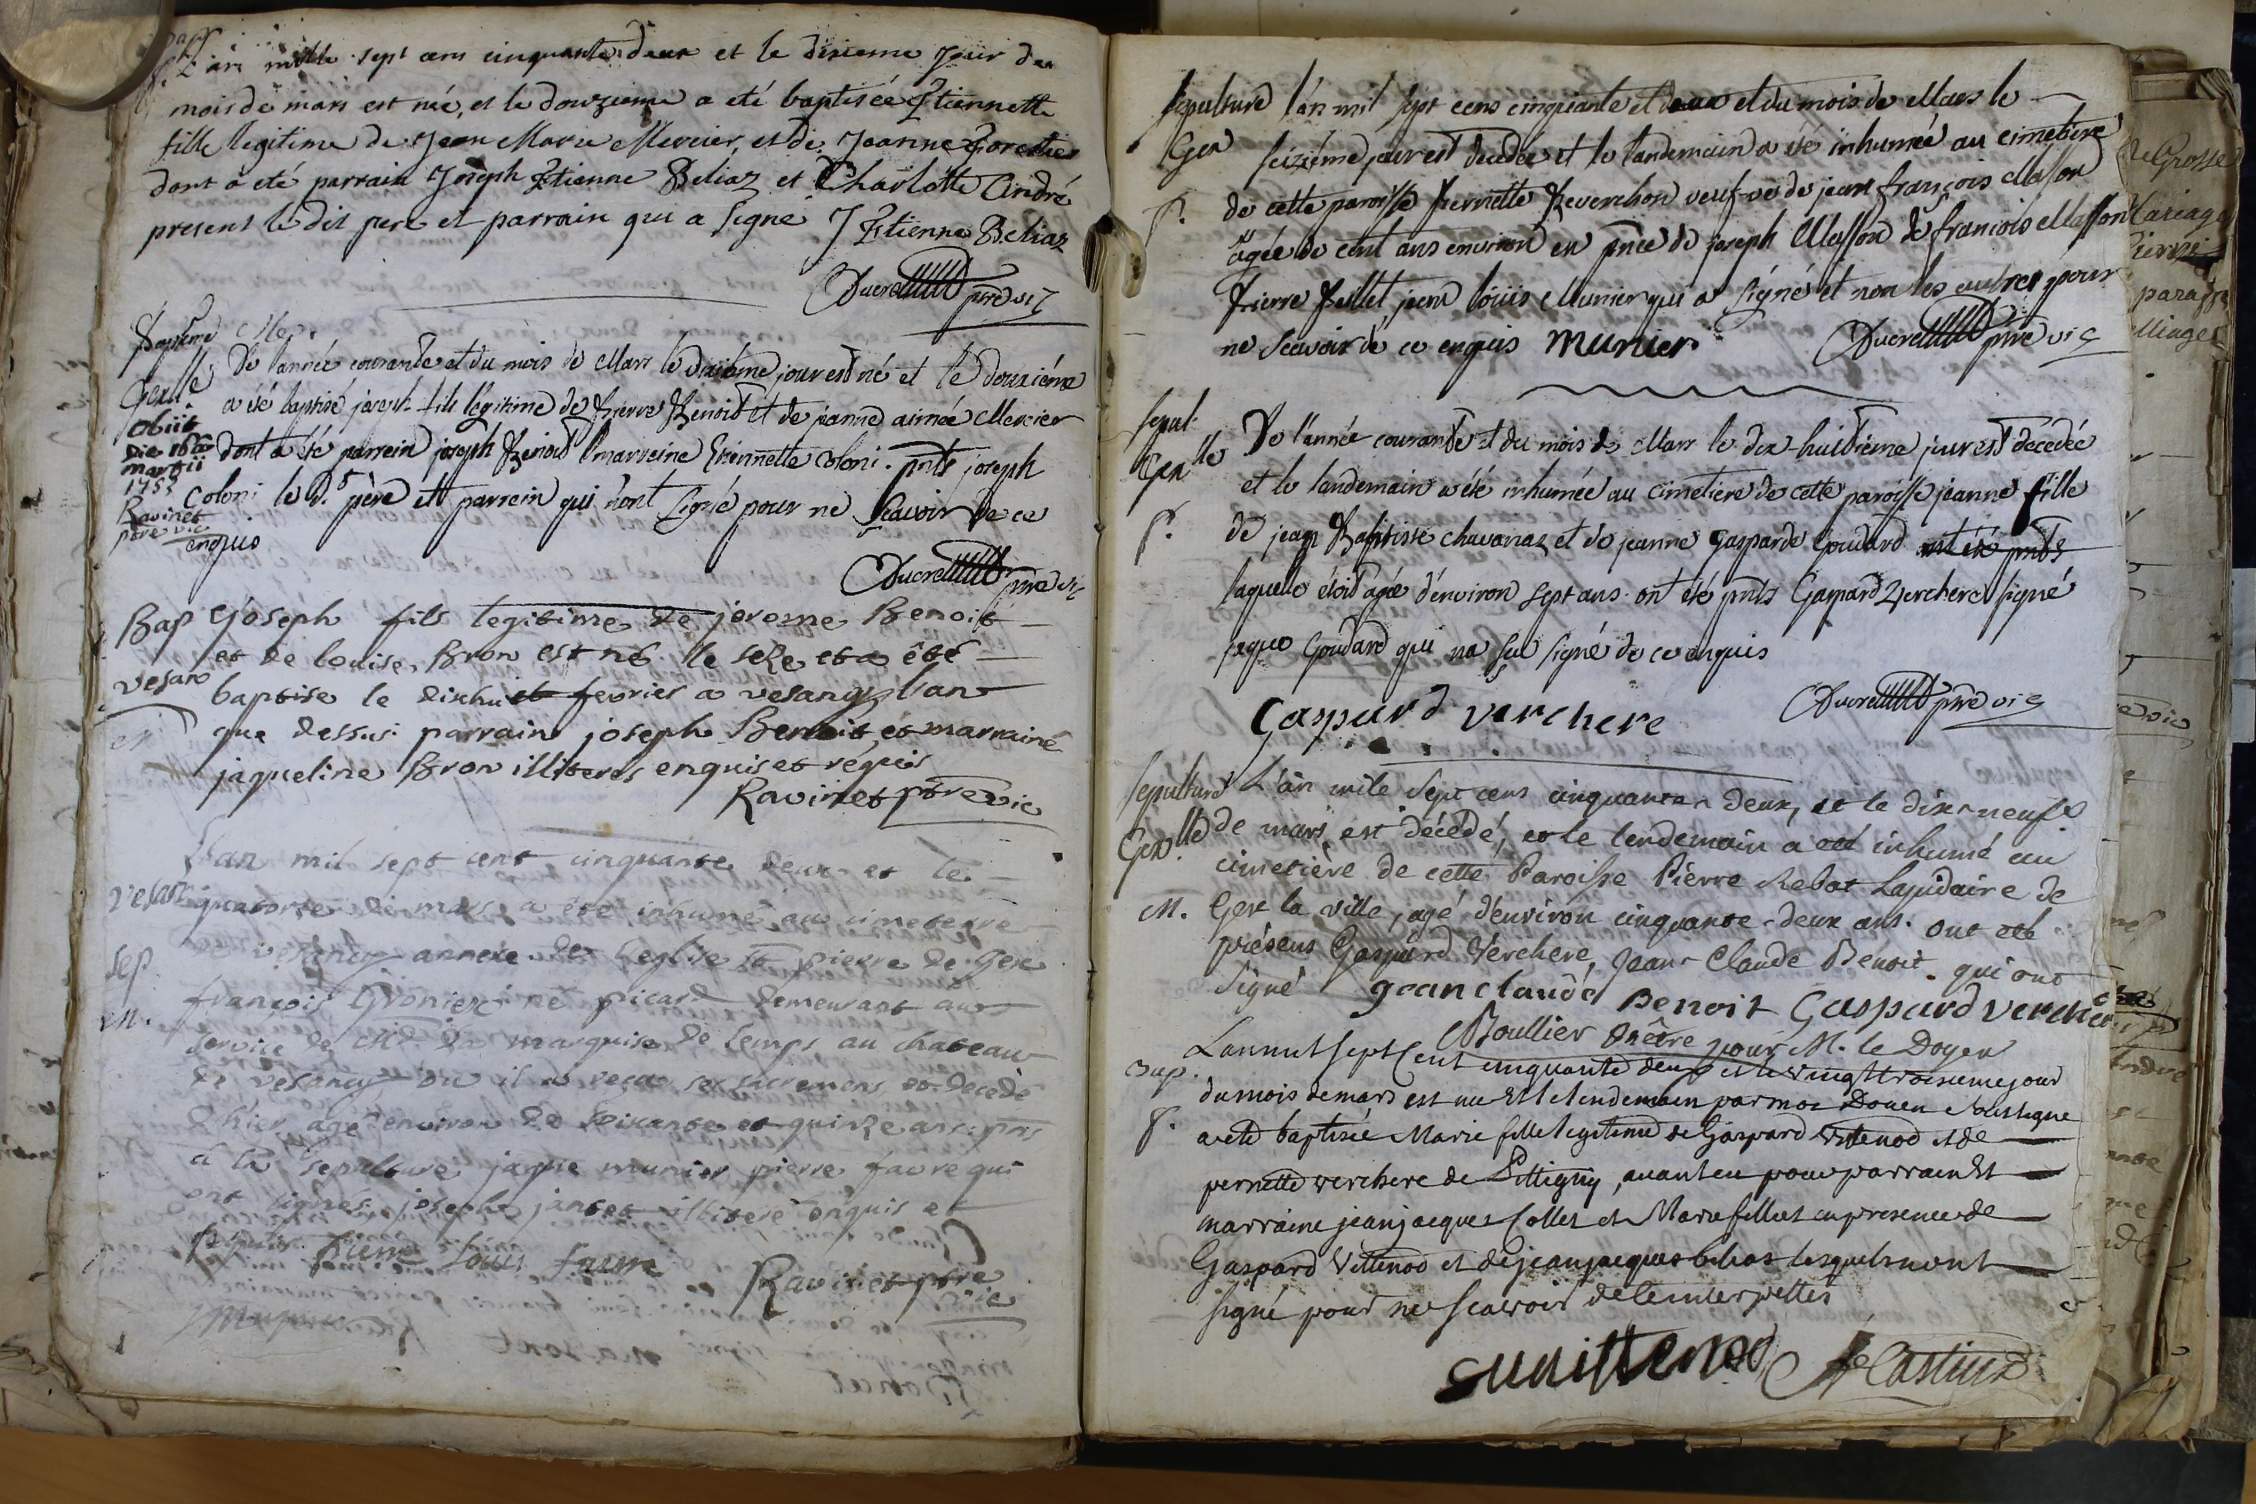 Bap
f. L'an mille sept cens cinquante deux et le dixieme jour du
mois de mars est née, et le douzieme a eté baptisée Etiennette
fille legitime de Jean Marie Mercier, et de Jeanne Forestier
dont a eté parrain Joseph Etienne Beliaz et Charlotte André
present le dit pere et parrain qui a signé J Etienne Beliaz
Ducret ptre vic
Baptême
Gex lle
M.
De l'année courante et du mois de Mars le dixième jour est né et le douzième
a été baptisé joseph fils légitime de Pierre Benoit et de janne aimée Mercier
dont a été parrein joseph Benoit marreine Etiennette Coloni. pnts joseph
Coloni le d.t père et parrein qui n'ont signé pour ne scavoir de ce
enquis
Obiit
die 16a
martii
1755
Ravinet
ptre vic
Ducret ptre vic
Bap
vesanc
joseph fils legitime de jerome Benoit
et de louise Bron est né le seze et a êté
baptise le dixhuit fevrier a vesancy l'an
que dessus parrain joseph Benoit et marraine
jaqueline Bron illiteres enquis et requis
Ravinet ptre vic
vesanc
sep
M.
L'an mil sept cent cinquante deux et le
quatorze de mars a été inhumé au cimetiere
de vesancy annexe de l'eglise st pierre de Gex
françois Gronier né picard demeurant au
service de Md. la marquise de lemps au chateau
de vesancy ou il a reçu ses sacremens et decedé
d'hier agé d'environ de soixante et quinze ans: pns
a la sepulture jaque munier pierre favre qui
ont signés joseph jantet illiteré enquis et
requis. Pierre Louis favre
Ravinet ptre
vic
J munier
Sepulture
Gex
f.
l'an mil sept cens cinquante et deux et du mois de Mars le
seizième jour est decedée et le landemain a été inhumée au cimetiere
de cette paroisse Pernette Reverchon veufve de jean françois Masson
agée de cent ans environ en pnce de joseph Masson de françois Masson
Pierre Pellet, jean loüis Munier qui a signé et non les autres pour
ne scavoir de ce enquis Munier
Ducret ptre vic
Sepul.
Gex lle
f.
De l'année courante et du mois de Mars le dix-huitième jour est décédée
et le landemain a été inhumée au cimetiere de cette paroisse jeanne fille
de jean Baptiste chavanaz et de jeanne Gasparde Goudard ont été pnts
laquelle étoit agée d'environ sept ans. ont été pnts Gaspard Verchere signé
jaque Goudard qui na sçu signé de ce enquis
Gaspard verchere
Ducret ptre vic
Sepulture
Gex lle
M.
L'an mile sept cens cinquante deux, et le dix neufe
de mars est décédé, et le lendemain a eté inhumé au
cimetière de cette Paroisse Pièrre Rebat Lapidaire de
Gex la ville, agé d'environ cinquante-deux ans. ont eté
présens Gaspard Verchere, Jean Claude Benoit. qui ont
signé Jean claude Benoit Gaspard verchere
Boullier Prêtre pour M. le Doyen
Bap.
f.
Lan mil sept cent cinquante deux et le vingt troisieme jour
du mois de mars est nee Et le lendemain par moi Doyen soussigne
a eté baptisée Marie fille legitime de Gaspard Vittenod et de
pernette verchere de Pittigny, ayant eu pour parrain Et
marraine jean jacques Collet et Marie fillet en presence de
Gaspard Vittenod et de jean jacques belias lesquels n'ont
signé pour ne scavoir de ce interpellés